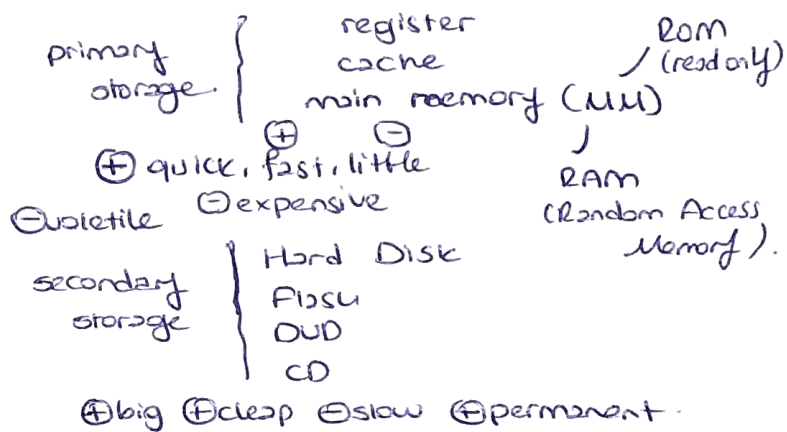 primary storage.
register
cache
main memory (MM)
ROM
(read only)
RAM
(Random Access
Memory).
⊕ ⊖
⊕ quick, fast, little
⊖ volatile ⊖ expensive
secondary storage
Hard Disk
Flash
DVD
CD
⊕ big ⊕ cheap ⊖ slow ⊕ permanent.